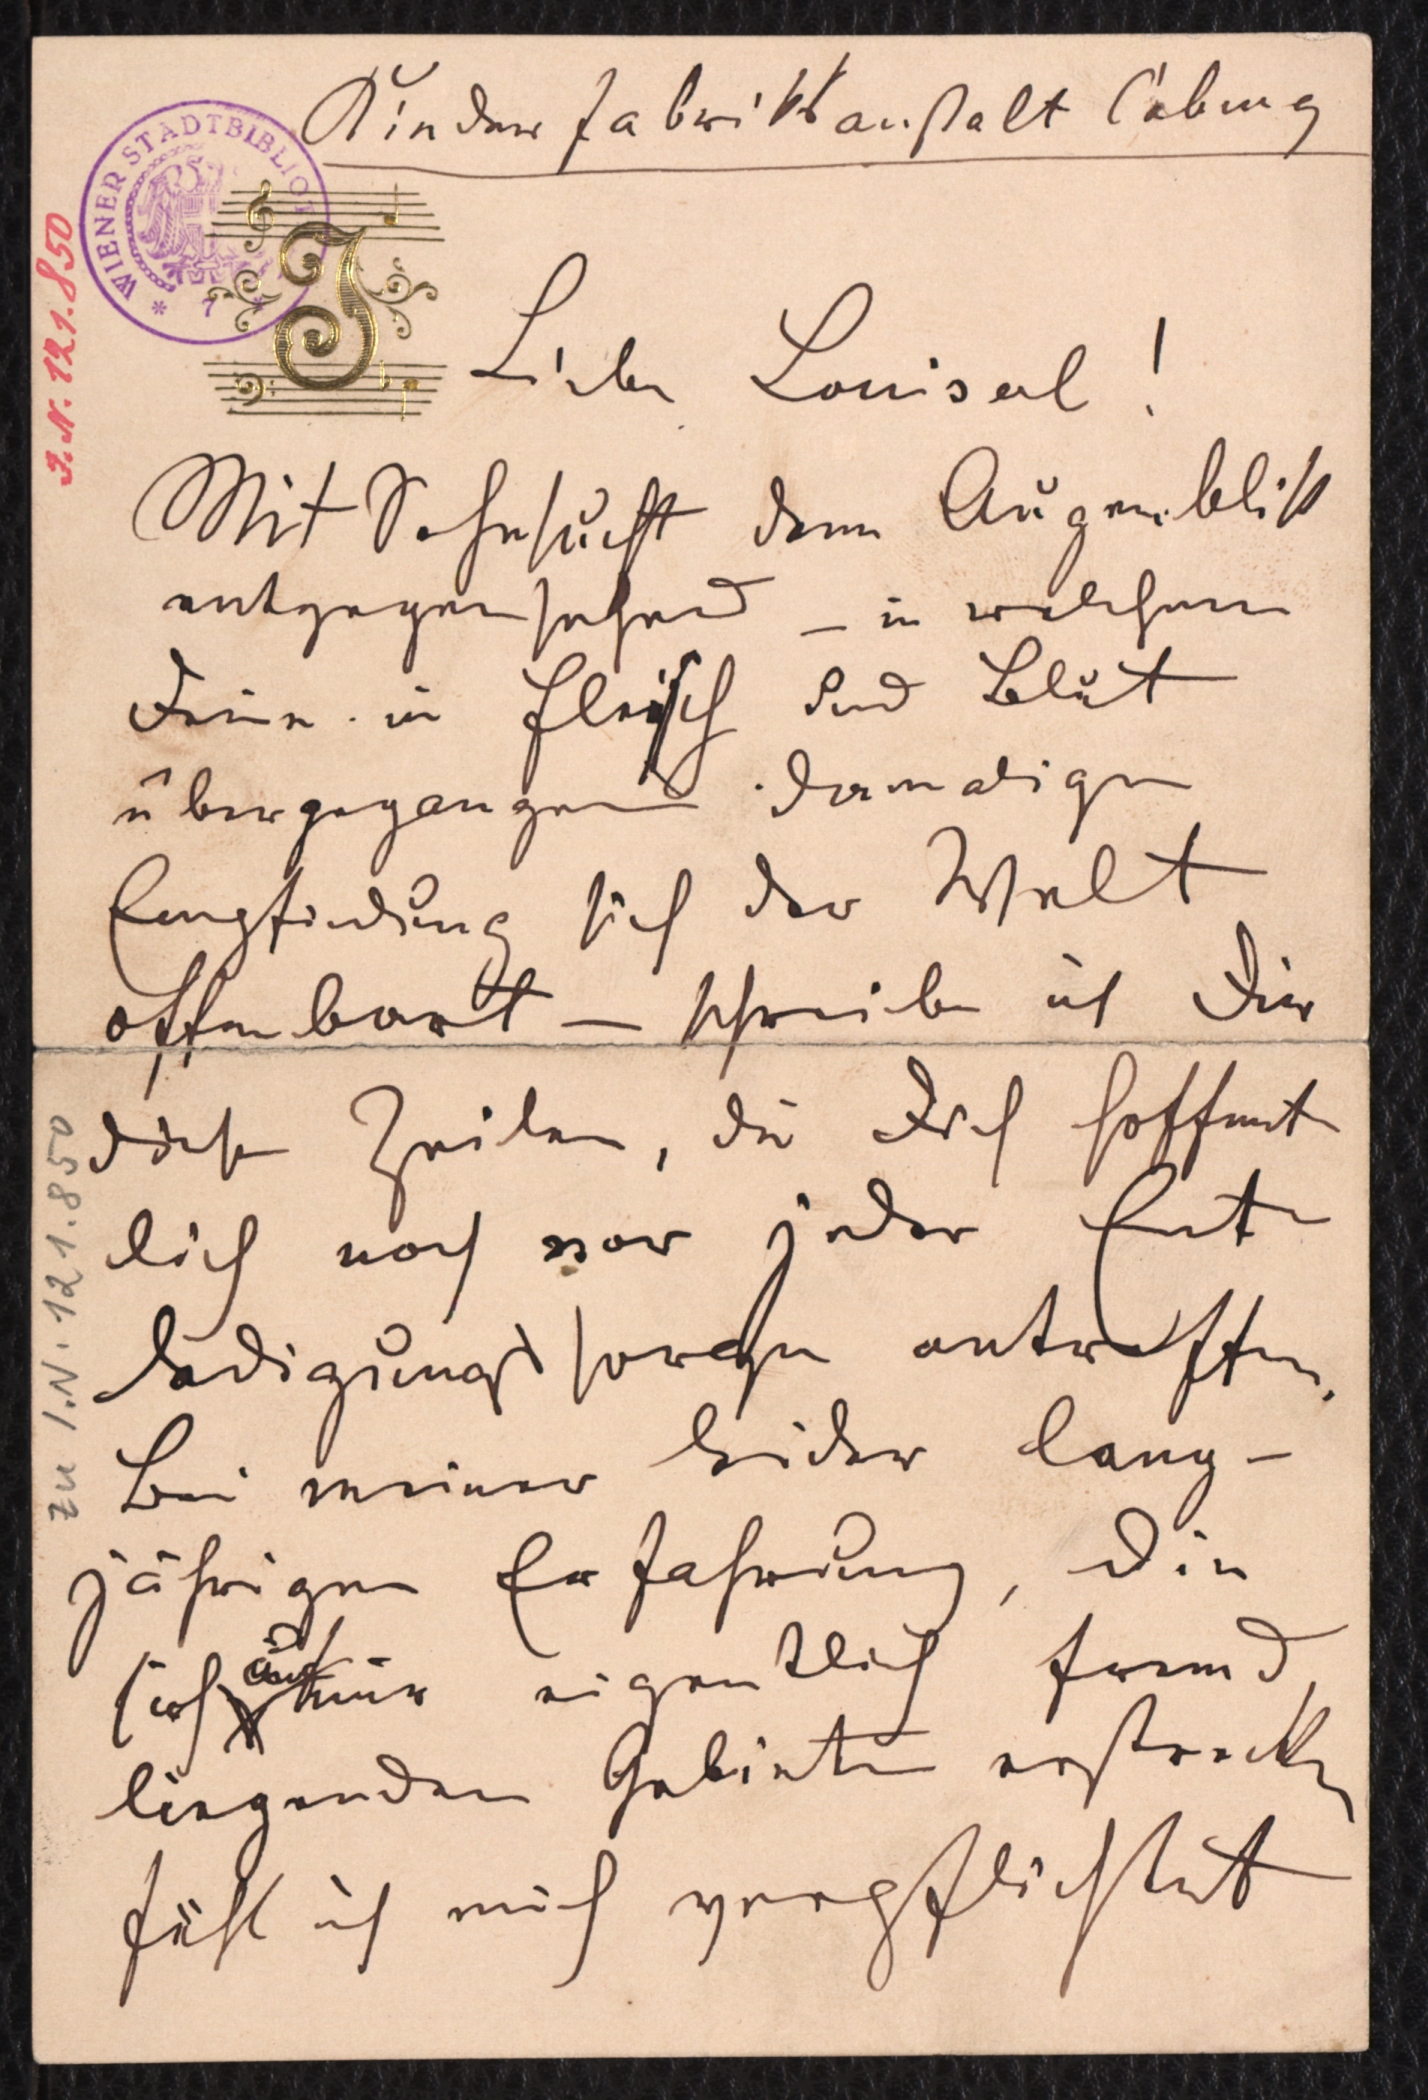 Kinderfabrikanstalt Cobung
WIENER STADTBIBLIO
* 7 *
J
J. N. 121.850
Liebe Louiserl!
Mit Sehnsucht dem Augenblik
entgegensehend – in welchem
Deine in Fleisch und Blut
übergegangene damalige
Empfindung sich der Welt
offenbart – schreibe ich Dir
diese Zeilen, die Dich hoffent
lich noch vor jeder Ent
ledigungssorge antreffen.
Bei meiner leider lang-
jährigen Erfahrung, die
sich auf mir eigentlich fremd
liegenden Gebieten erstreckt,
fühl ich mich verpflichtet
zu I.N. 121.850